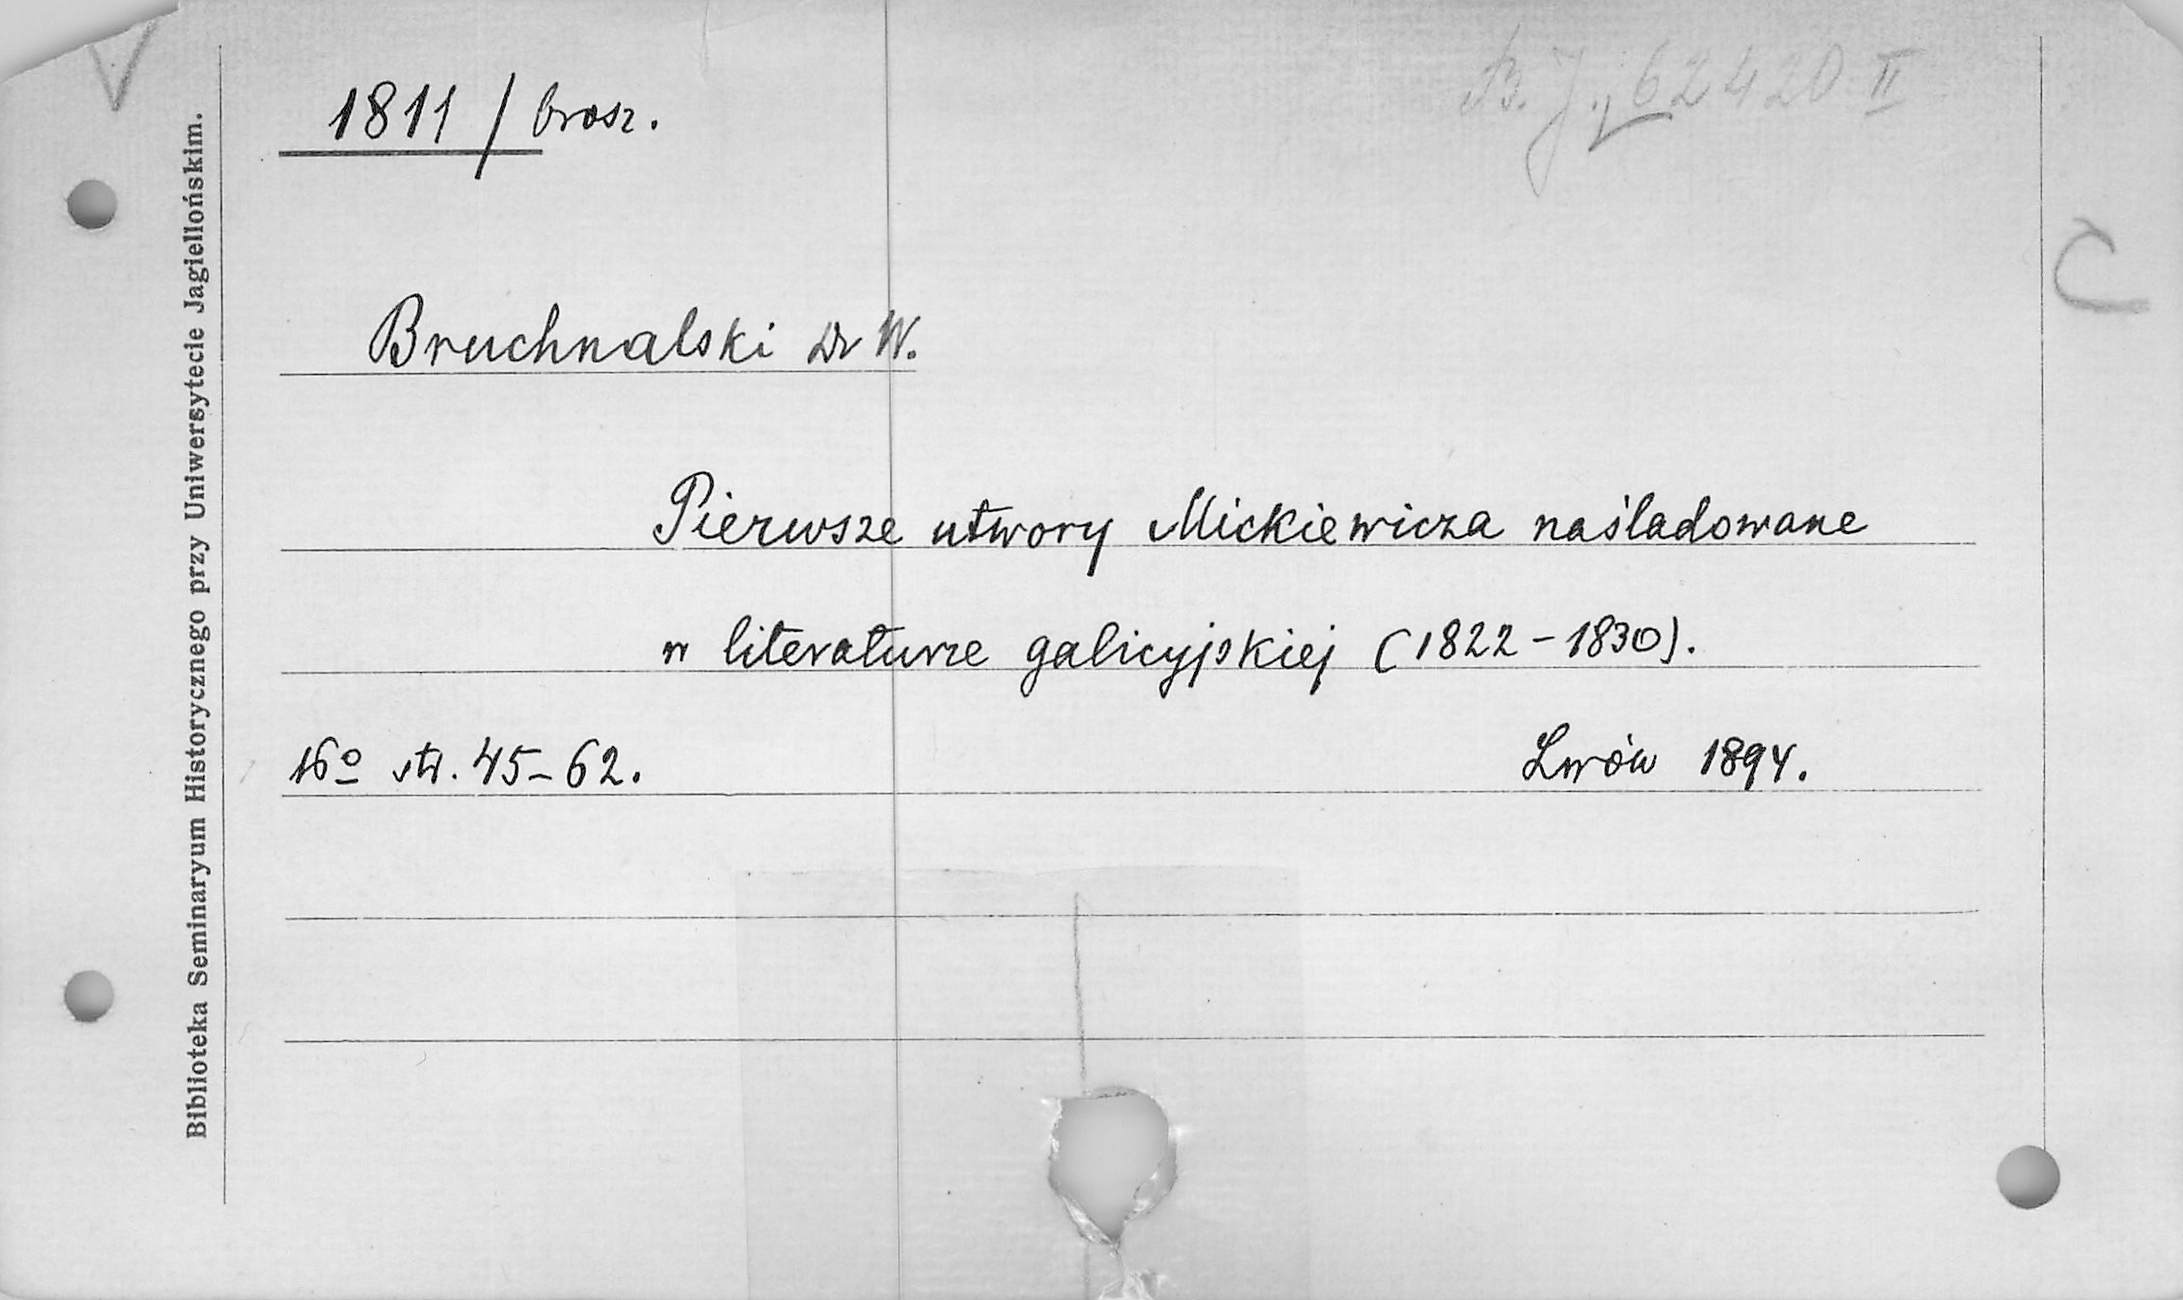 1811 / brosz.
B. J. 62420 II
Bruchnalski Dr W.
Pierwsze utwory Mickiewicza naśladowane
w literaturze galicyjskiej (1822-1830).
16º str. 45-62.
Lwów 1894.
Biblioteka Seminaryum Historycznego przy Uniwersytecie Jagiellońskim.